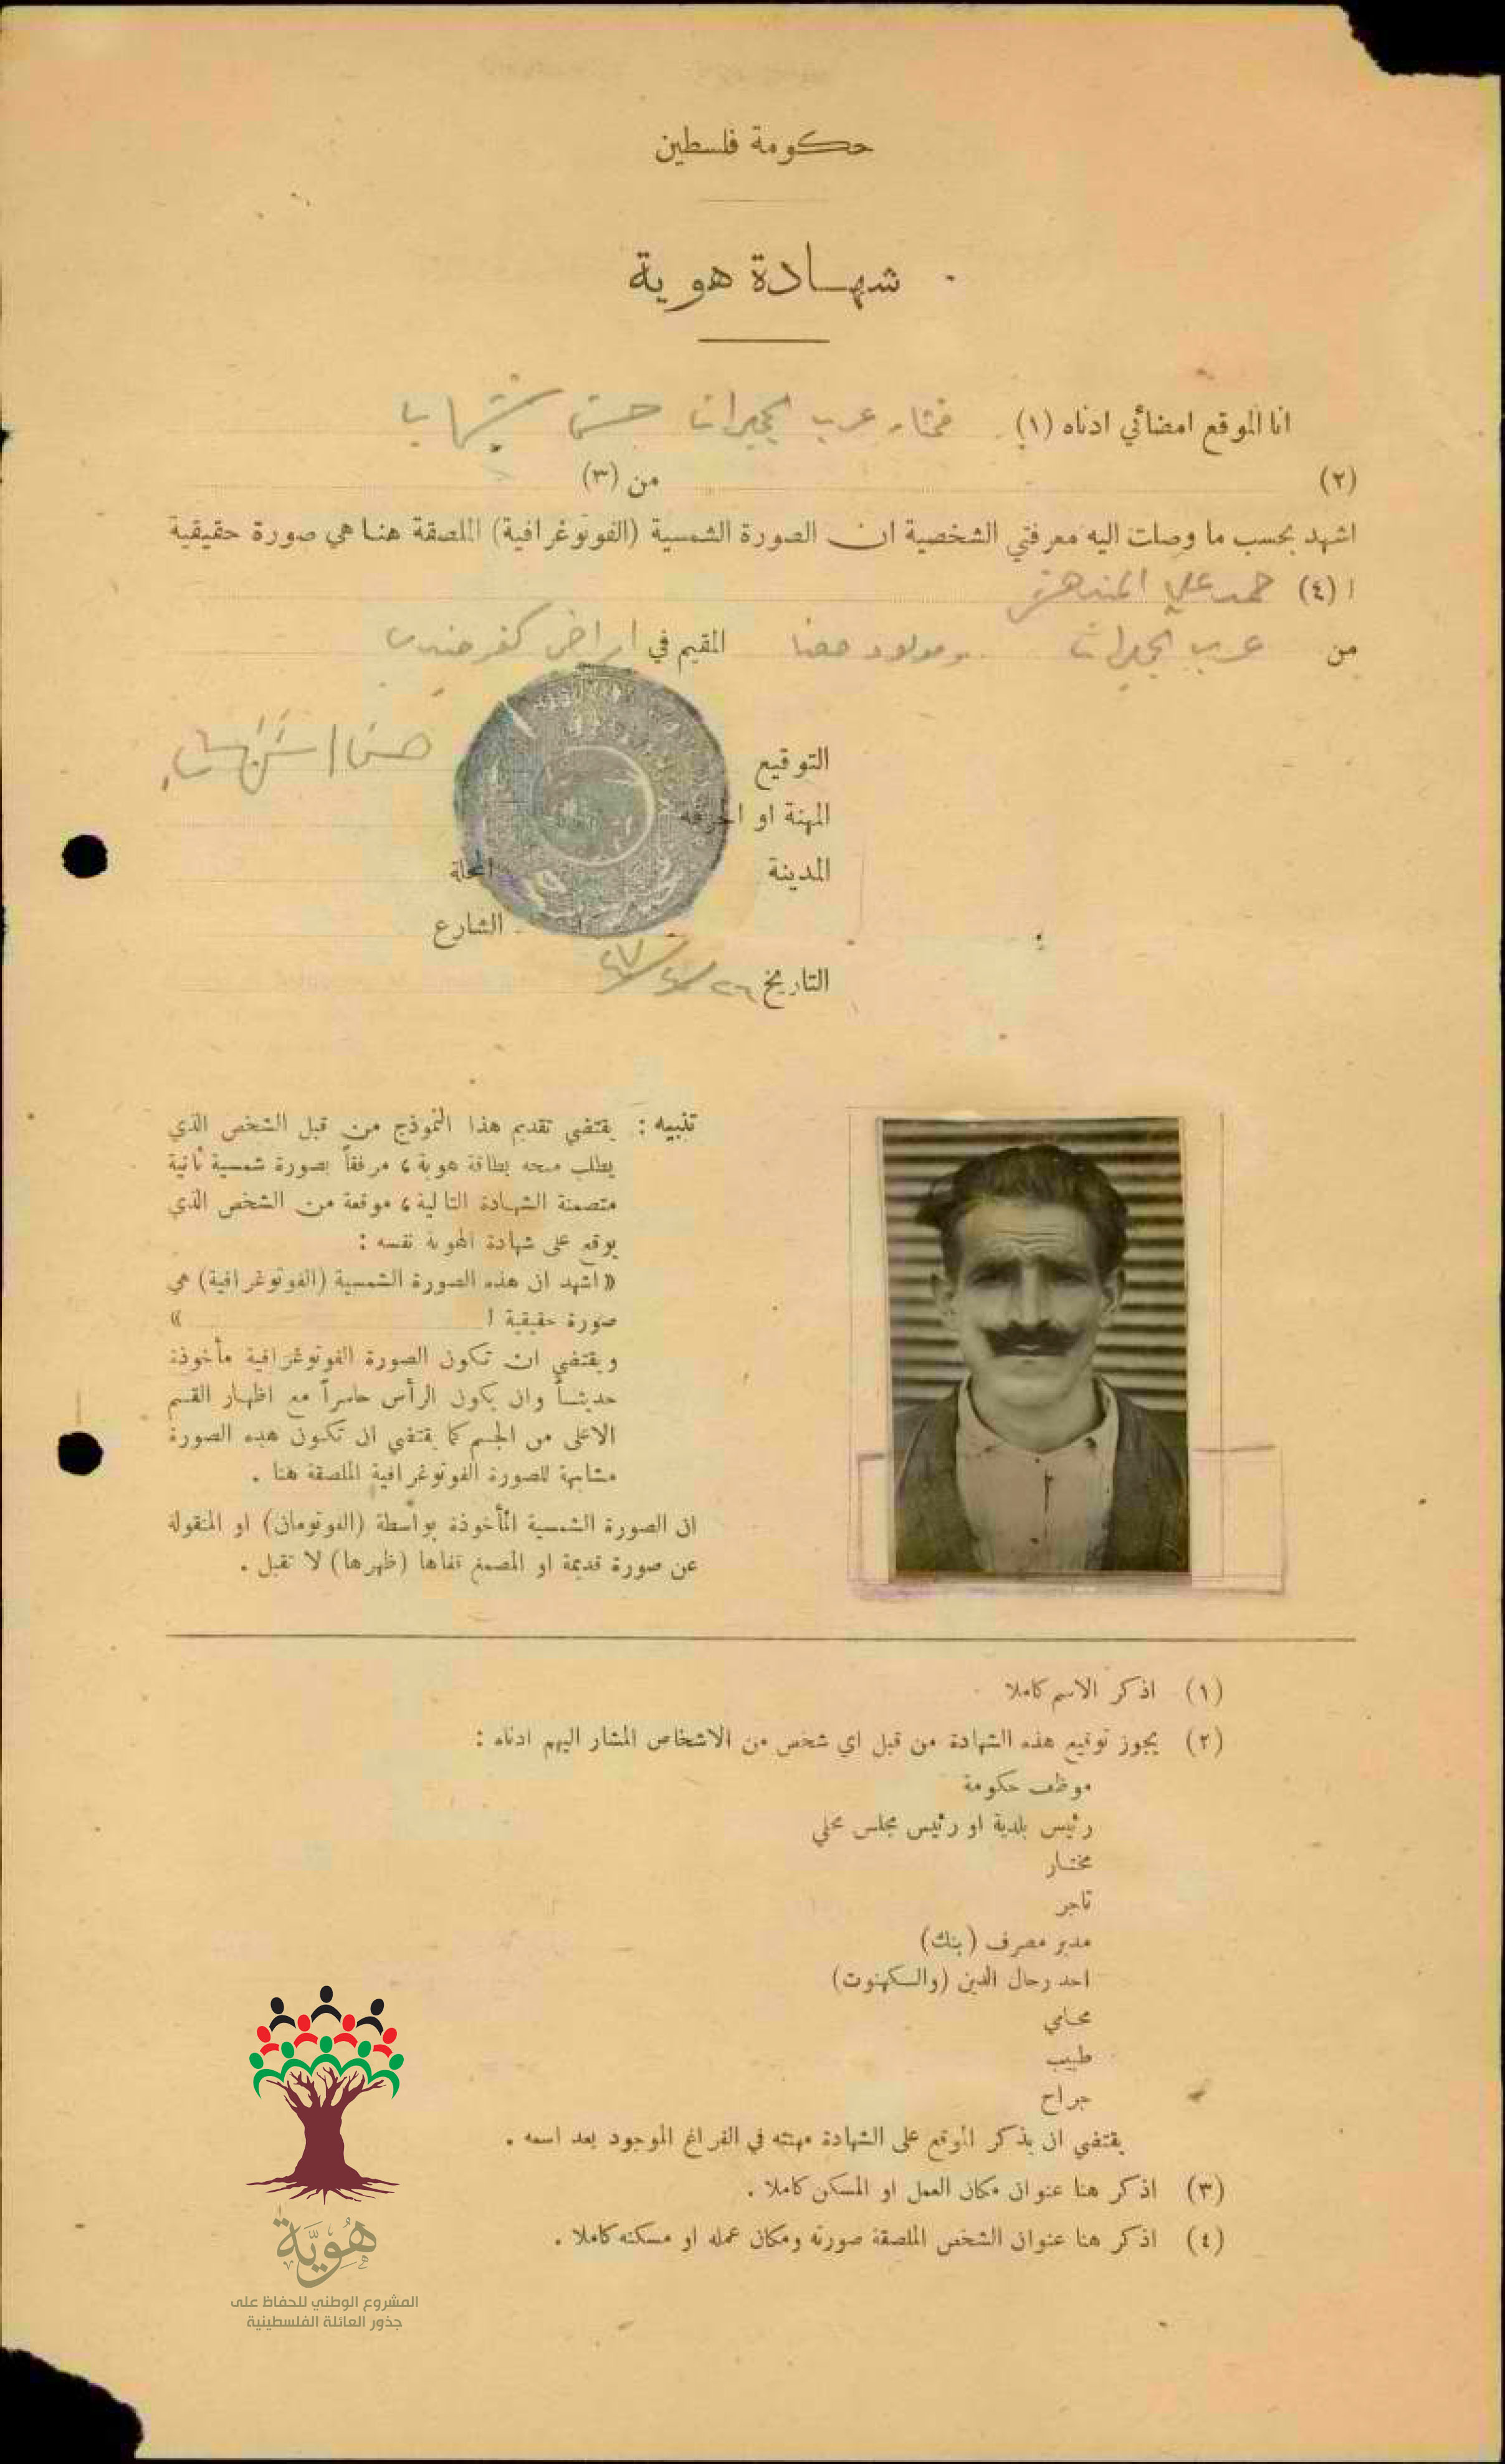 حكومة فلسطين
شهادة هوية
انا الموقع امضائي ادناه (١) مختار عرب الحجيرات حسن شهاب
(٢) من (٣)
اشهد بحسب ما وصلت اليه معرفتي الشخصية ان الصورة الشمسية (الفوتوغرافية) الملصقة هنا هي صورة حقيقية
ا (٤) حمد علي
من عرب الحجيرات ومولود هنا المقيم في اراضي كفر مندا
التوقيع حسن شهاب
المهنة او الحرفة
المدينة المحلة
الشارع
التاريخ ٢٦/٤/٤٧
تنبيه : يقتضي تقديم هذا النموذج من قبل الشخص الذي
يطلب منحه بطاقة هوية ، مرفقاً بصورة شمسية ثانية
متضمنة الشهادة التالية ، موقعة من الشخص الذي
يوقع على شهادة الهوية نفسه :
« اشهد ان هذه الصورة الشمسية (الفوتوغرافية) هي
صورة حقيقية ا »
ويقتضي ان تكون الصورة الفوتوغرافية مأخوذة
حديثاً وان يكون الرأس حاسراً مع اظهار القسم
الاعلى من الجسم كما يقتضي ان تكون هذه الصورة
مشابهة للصورة الفوتوغرافية الملصقة هنا .
ان الصورة الشمسية المأخوذة بواسطة (الفوتومان) او المنقولة
عن صورة قديمة او المصمغ قفاها (ظهرها) لا تقبل .
(١) اذكر الاسم كاملا
(٢) يجوز توقيع هذه الشهادة من قبل اي شخص من الاشخاص المشار اليهم ادناه :
موظف حكومة
رئيس بلدية او رئيس مجلس محلي
مختار
تاجر
مدير مصرف (بنك)
احد رجال الدين (والكهنوت)
محامي
طبيب
جراح
يقتضي ان يذكر الموقع على الشهادة مهنته في الفراغ الموجود بعد اسمه .
(٣) اذكر هنا عنوان مكان العمل او المسكن كاملا .
(٤) اذكر هنا عنوان الشخص الملصقة صورته ومكان عمله او مسكنه كاملا .
هُويَّة
المشروع الوطني للحفاظ على
جذور العائلة الفلسطينية